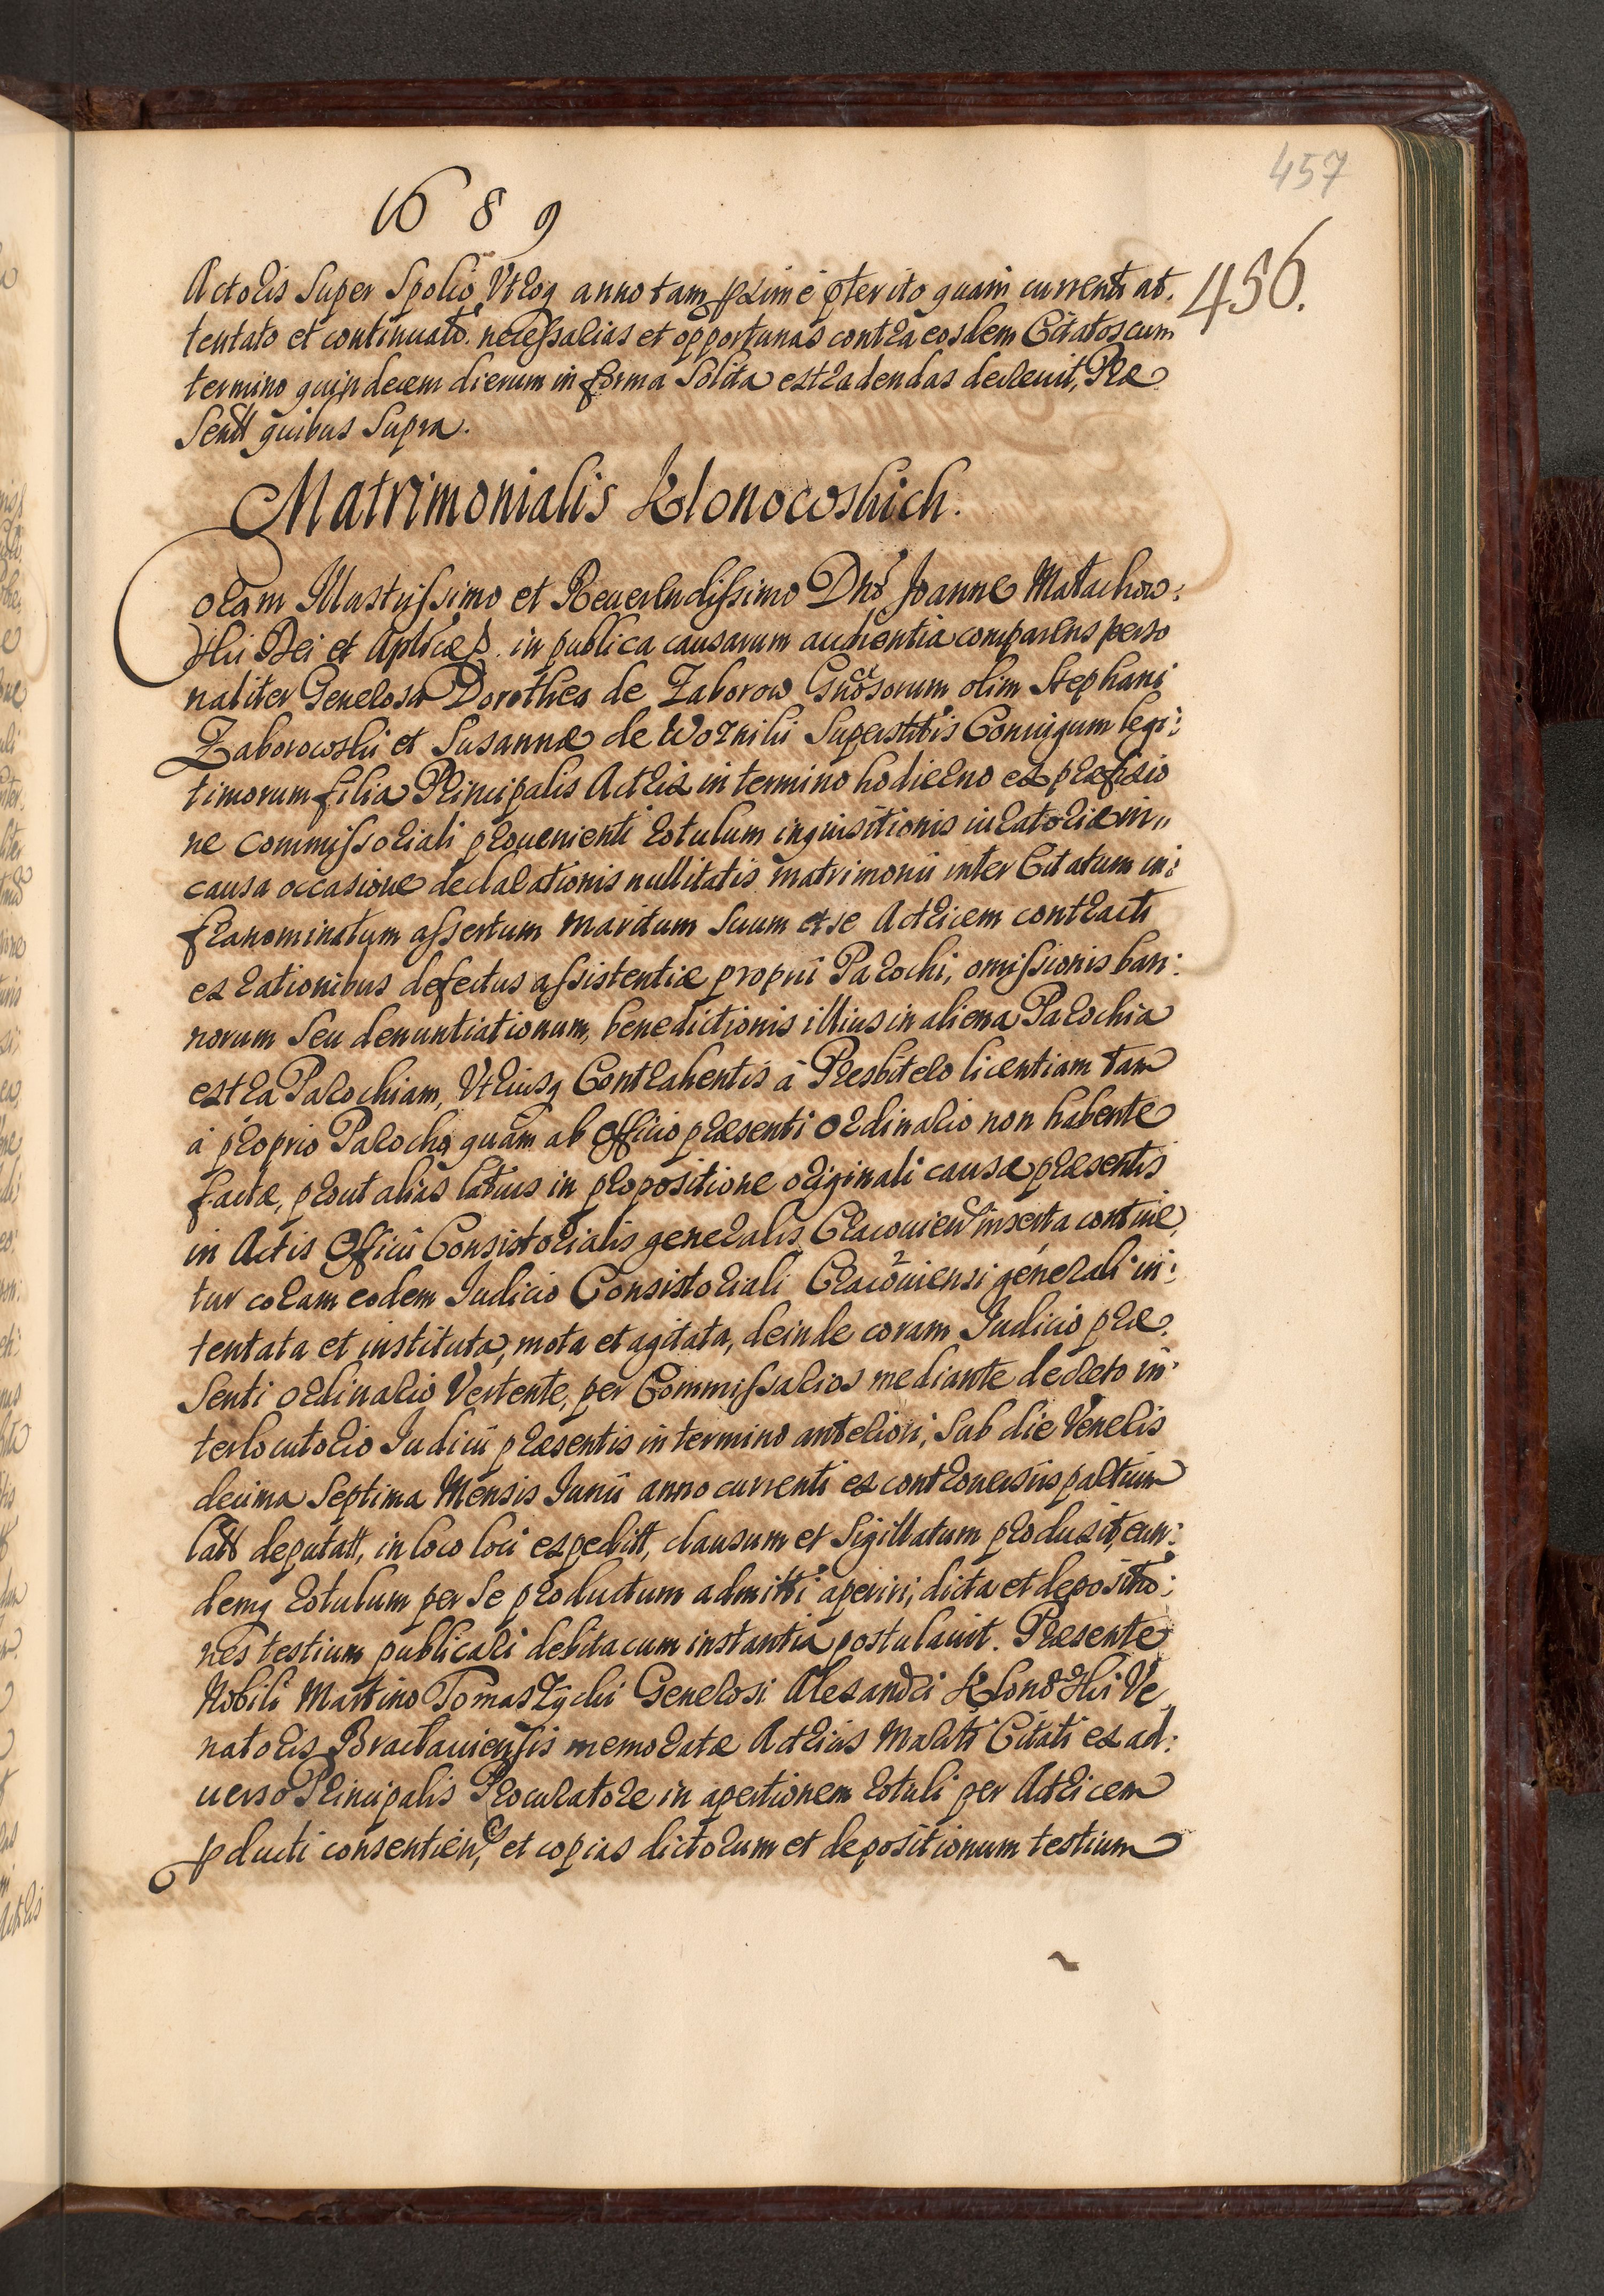 457
1689
456.
Actoris super spolio Utroq anno tam pxime pterito quam currenti at,
tentato et continuato necessarias et opportunas contra eosdem Citatos cum
termino quindecem dierum in forma solita extradendas decreuit, Præ
sentt quibus supra.
Matrimonialis Klonowskich.
Coram Illustrissimo et Reuerendissimo Dno Joanne Małachow:
ski Dei et Aplicæ S. in publica causarum audientia comparens perso
naliter Generosa Dorothea de Zaborow Gnosorum olim Stephani
Zaborowski et Susannæ de Wozniki Superstitis Coniugum legi:
timorum filia Principalis Actrix in termino hodierno ex præfixio
ne commissoriali prouenienti rotulum inquisitionis iuratoriæ in
causa occasione declarationis nullitatis matrimonii inter Citatum in:
franominatum assertum maritum suum et se Actricem contracti
ex rationibus defectus assistentiæ proprii Parochi, omissionis ban:
norum seu denuntiationum, benedictionis illius in aliena Parochia
extra Parochiam, Utriusq Contrahentis à Presbitero licentiam tam
à proprio Parocho quàm ab Officio præsenti Ordinario non habente
factæ, prout alias latius in propositione originali causæ præsentis
in Actis Officii Consistorialis generalis Cracouien inserta contine,
tur coram eodem Iudicio Consistoriali Cracouiensi generali in:
tentata et instituta, mota et agitata, deinde coram Iudicio præ.
senti ordinario Vertente, per Commissarios mediante decreto in:
terlocutorio Iudicii præsentis in termino anteriori, sub die Veneris
decima septima Mensis Iunii anno currenti ex controuersiis partium
latt deputatt, in loco loci expeditt, clausum et sigillatum produxit, eun:
demq rotulum per se productum admitti aperiri, dicta et depositio:
nes testium publicari debita cum instantia postulauit. Præsente
Nobili Martino Tomaszycki Generosi Alexandri Klonoski Ve
natoris Bracłauiensis memoratæ Actricis Mariti Citati ex ad:
uerso Principalis Procuratore in apertionem rotuli per Actricem
pducti consentien, et copias dictorum et depositionum testium